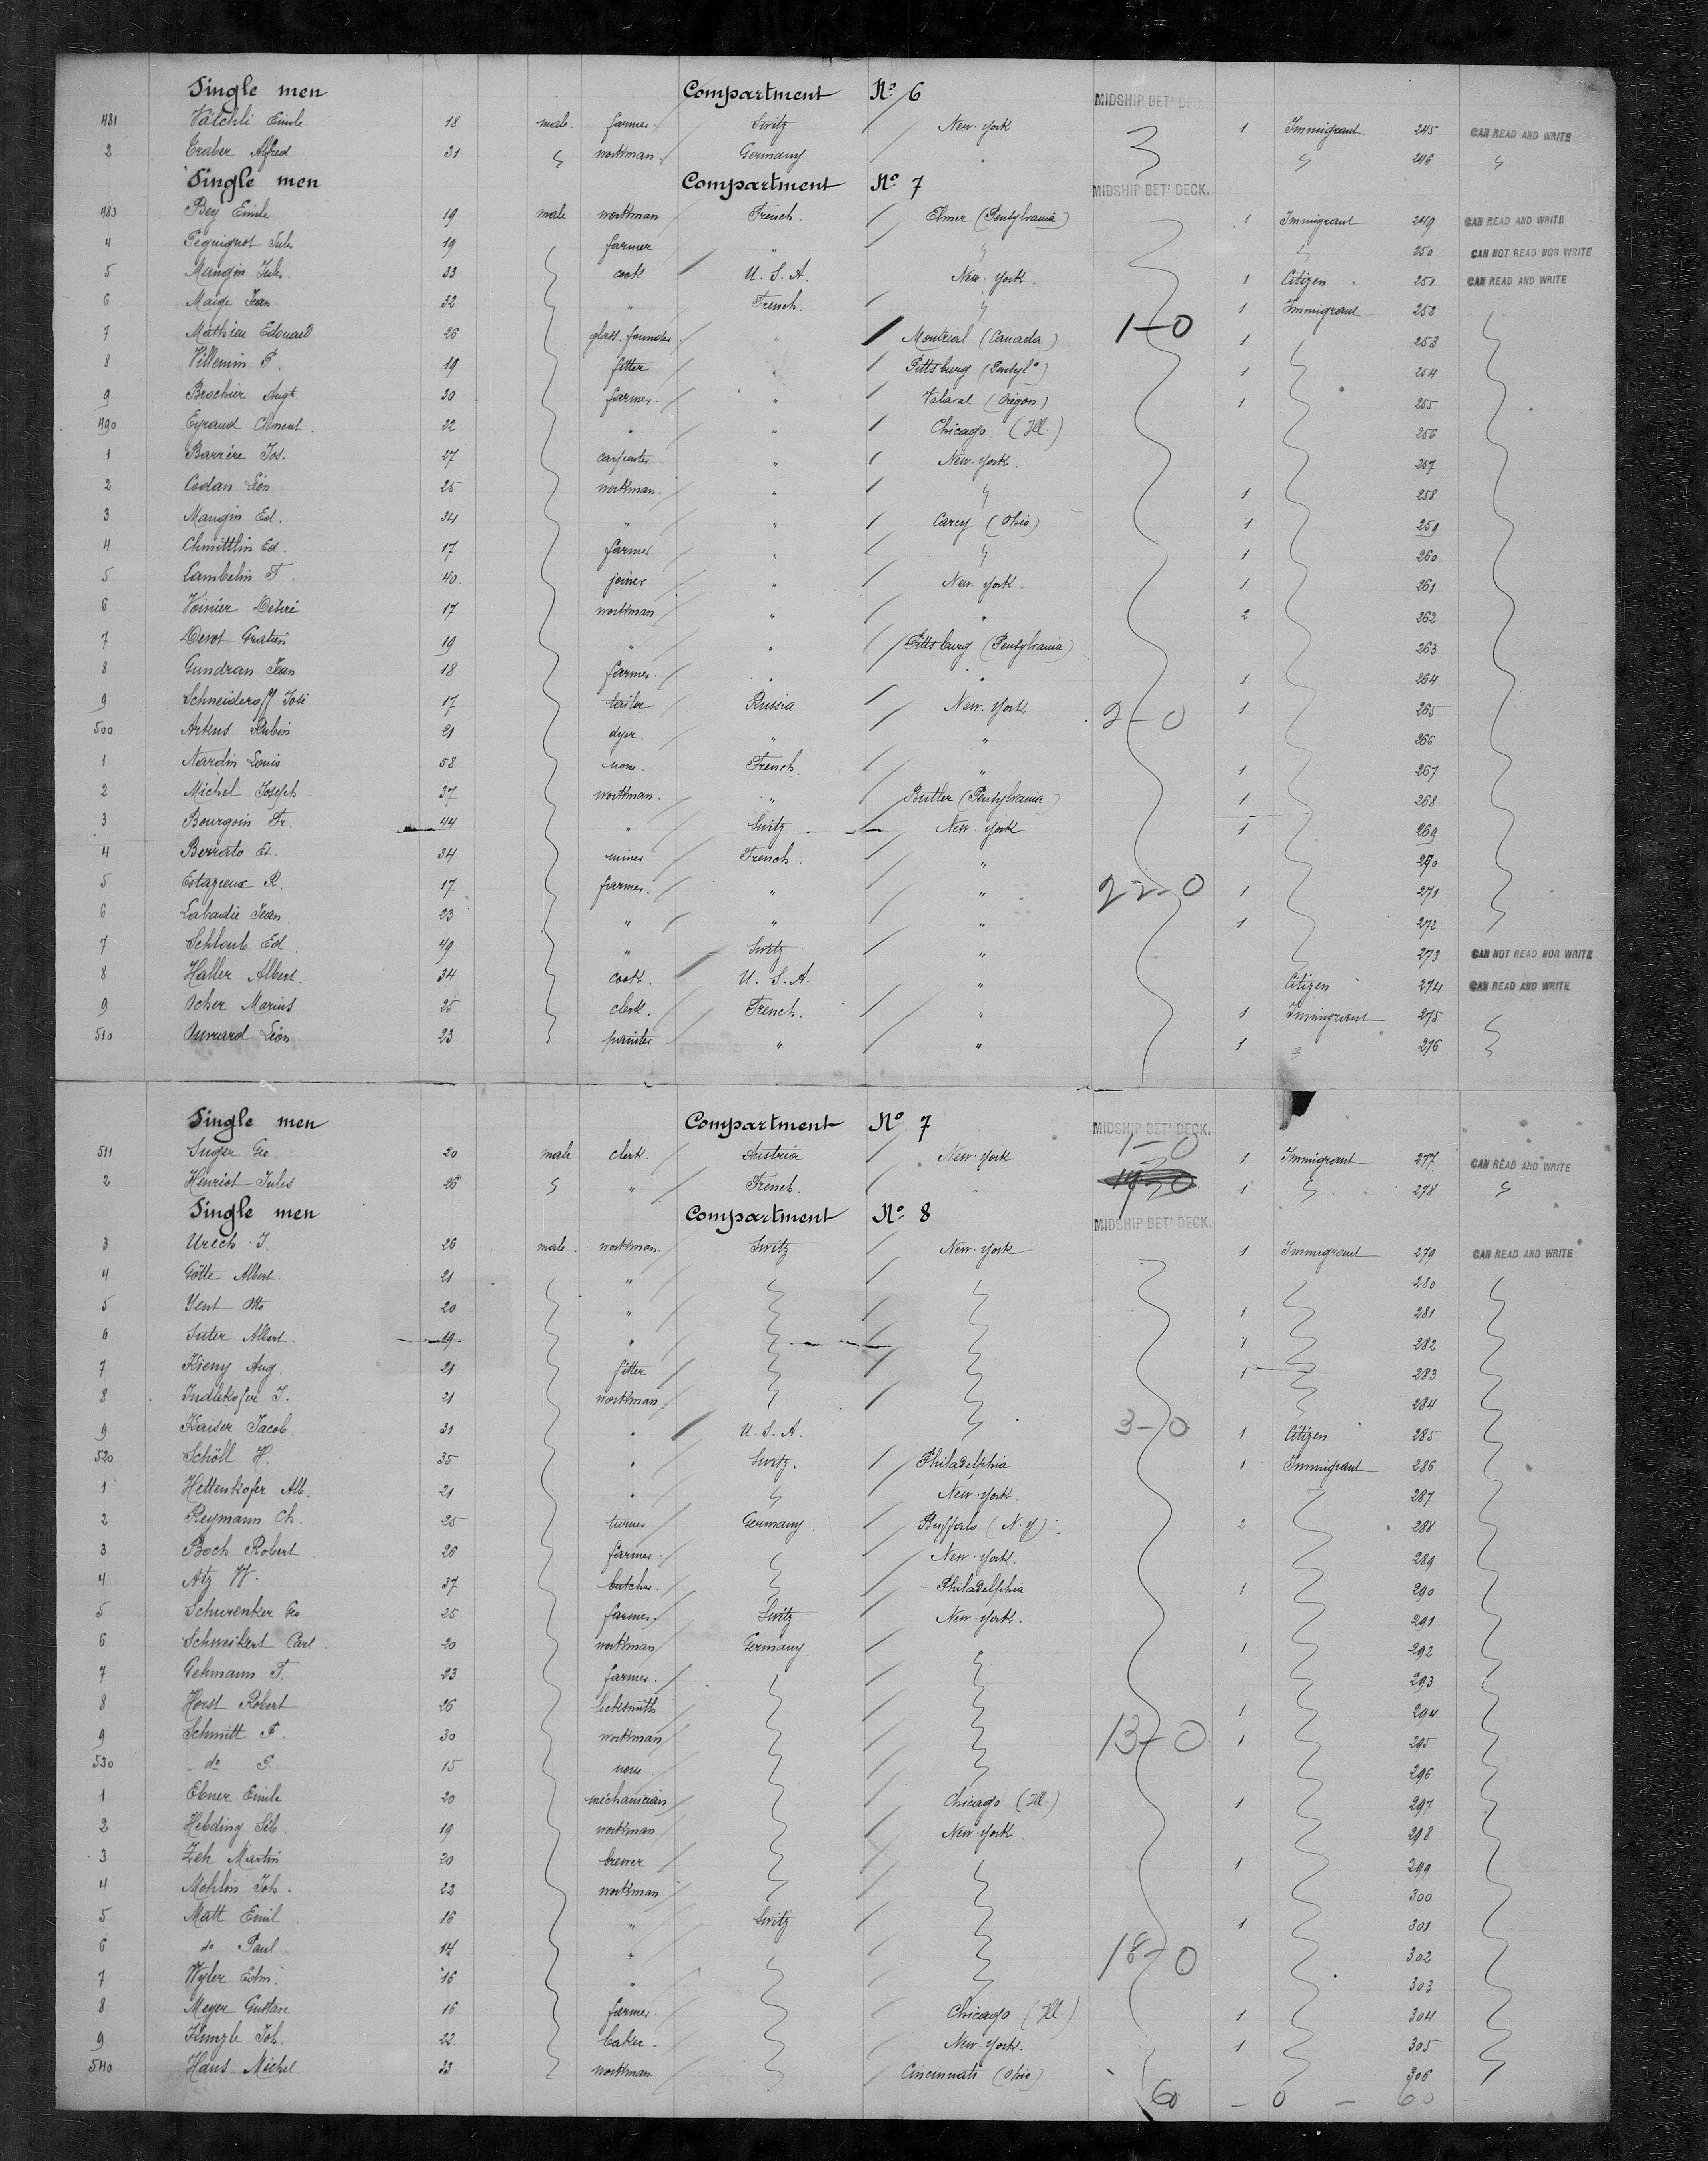 Single men Compartment No 6 MIDSHIP BET' DECK.
481 Välchli Emile 18 male farmer Switz New-York 1 Immigrant 245 CAN READ AND WRITE
2 Craber Alfred 31 workman Germany 246
Single men Compartment No 7 MIDSHIP BET' DECK.
483 Bey Emile 19 male workman French Elmer (Pensylvania) 1 Immigrant 249 CAN READ AND WRITE
4 Pequignot Jules 19 farmer " 250 CAN NOT READ NOR WRITE
5 Mangin Jules 33 cook U. S. A. New-York 1 Citizen 251 CAN READ AND WRITE
6 Maige Jean 32 " French 1 Immigrant 252
7 Mathieu Edouard 26 glass-founder " Montreal (Canada) 1-0 1 253
8 Villemin P. 19 fitter " Pittsburg (Pensyla) 1 254
9 Brochier Augt 30 farmer " (Oregon) 1 255
490 Eyraud Clement 22 " " Chicago (Ill.) 256
1 Barrère Jos. 27 carpenter " New-York. 257
2 Codan Léon 25 workman " 1 258
3 Mangin Ed. 34 " " Carey (Ohio) 1 259
4 Chmittlin Ed. 17 farmer " 1 260
5 Lambelin F. 40 joiner " New-York. 1 261
6 Voinier Desiré 17 workman " " 2 262
7 Gratien 19 " " Pittsburg (Pensylvania) 263
8 Gundran Jean 18 farmer " " 1 264
9 Schneideroff José 17 tailor Russia New-York 2-0 1 265
500 Artens Rubin 21 dyer " " 266
1 Nardin Louis 58 none French " 1 267
2 Michel Joseph 37 workman " Butler (Pensylvania) 1 268
3 Bourgoin Fr. 44 " Switz New-York 1 269
4 Berrato Et. 34 miner French " 270
5 R. 17 farmer " " 22-0 1 271
6 Labadie Jean 23 " " " 1 272
7 Schloub Ed 49 " Switz " 273 CAN NOT READ NOR WRITE
8 Haller Albert 34 cook U. S. A. " Citizen 274 CAN READ AND WRITE
9 Acher Marius 25 clerk French " 1 Immigrant 275
510 Léon 23 painter " " 1 276
Single men Compartment No 7 MIDSHIP BET' DECK.
511 Geo. 20 male clerk Austria New-York 1-0 1 Immigrant 277 CAN READ AND WRITE
2 Henriot Jules 26 " French " 1 278
Single men Compartment No 8 MIDSHIP BET' DECK.
3 Urech J. 26 male workman Switz New-York 1 Immigrant 279 CAN READ AND WRITE
4 Götte Albert 21 " 280
5 Yent Otto 20 " 1 281
6 Suter Albert 19 " 1 282
7 Kieny Aug. 21 fitter 1 283
8 Indlekofer J. 21 workman 284
9 Kaiser Jacob 31 " U. S. A. 3-0 1 Citizen 285
520 Schöll H. 35 " Switz. Philadelphia 1 Immigrant 286
1 Hettenkofer Alb. 21 " New-York. 287
2 Reymann Ch. 25 turner Germany Buffalo (N.Y) 2 288
3 Boch Robert 26 farmer New-York. 289
4 Atz W. 37 butcher Philadelphia 1 290
5 Schwenker Geo 25 farmer Switz New-York. 291
6 Schweikert Carl 20 workman Germany 1 292
7 Gehmann F. 23 farmer 293
8 Horst Robert 26 locksmith 1 294
9 Schmitt P. 30 workman 13-0 1 295
530 do P. 15 none 296
1 Ebner Emile 20 mechanician Chicago (Ill.) 1 297
2 Hebding Séb. 19 workman New-York 298
3 Zeh Martin 20 brewer 1 299
4 Mohlin Joh. 22 workman 300
5 Matt Emil 16 " Switz 1 301
6 do Paul 14 " 18-0 302
7 Wyler Edm. 16 " 303
8 Meyer Gustave 16 farmer Chicago (Ill.) 1 304
9 Kunzle Joh. 22 baker New-York. 1 305
540 Haus Michel 33 workman Cincinnati (Ohio) 306
60 - 0 - 60